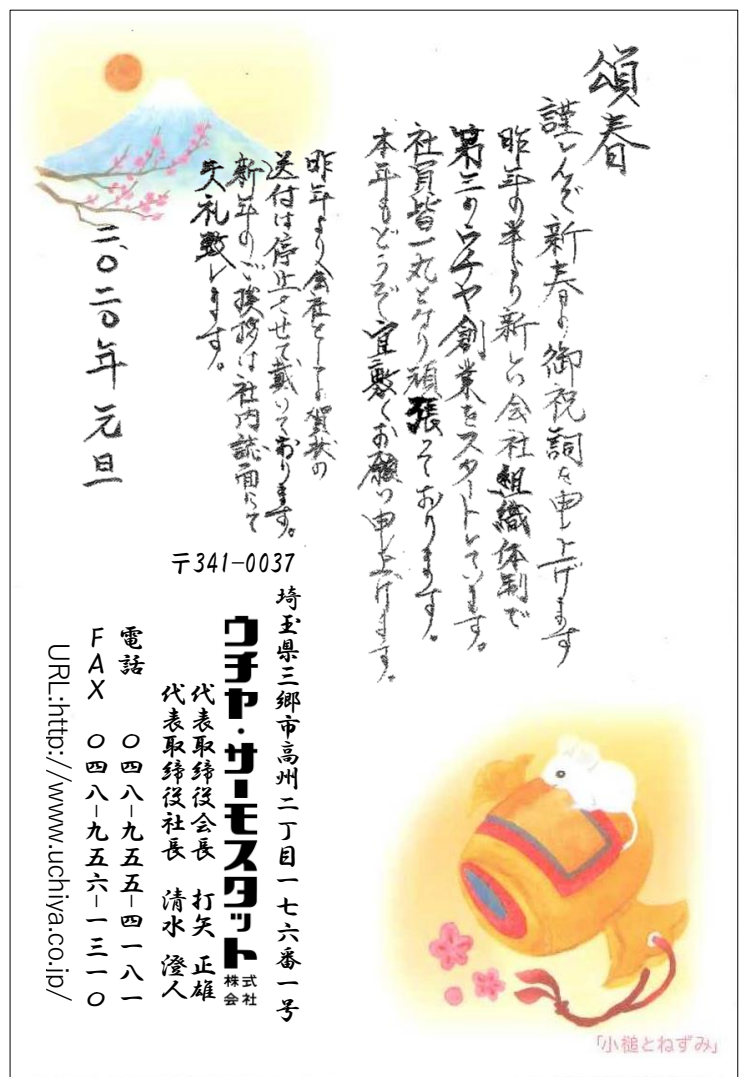 頌春
謹んで新春の御祝詞を申し上げます
昨年の半より新しい会社組織体制で
第三のウチヤ創業をスタートしています。
社員皆一丸となり頑張っております。
本年もどうぞ宜敷くお願い申し上げます。
昨年より会社としての賀状の
送付は停止させて戴いております。
新年のご挨拶は社内誌面にて
失礼致します。
二〇二〇年 元旦
〒341-0037
埼玉県三郷市高州二丁目一七六番一号
ウチヤ・サーモスタット株式会社
代表取締役会長 打矢 正雄
代表取締役社長 清水 澄人
電話 〇四八-九五五-四一八一
FAX 〇四八-九五六-一三一〇
URL:http://www.uchiya.co.jp/
「小槌とねずみ」